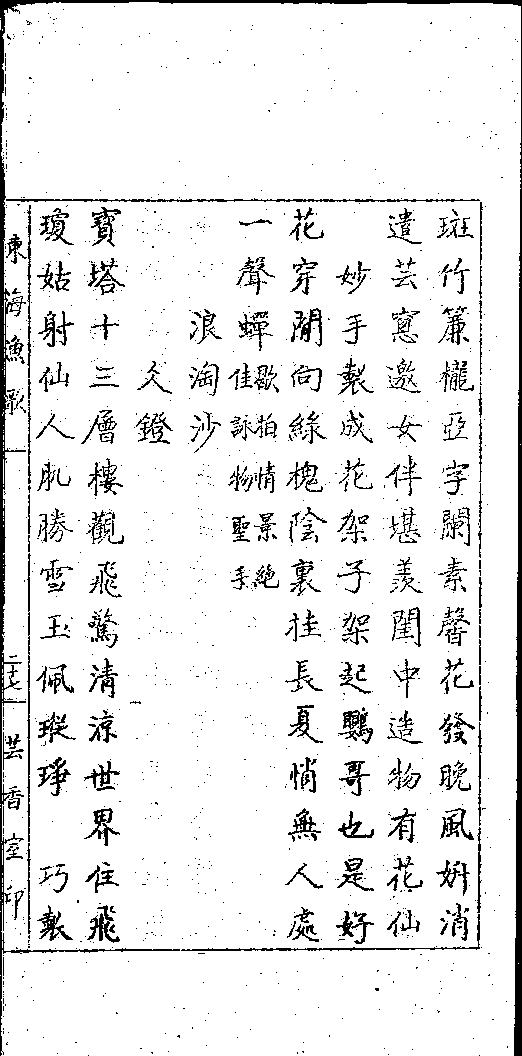 斑竹簾櫳亞字闌素馨花發晚風妍消
遣芸窓邀女伴堪羨閨中造物有花仙
妙手製成花架子架起鸚哥也是好
花穿閒向綠槐陰裏挂長夏悄無人處
一聲蟬歇拍情景絶
佳詠物聖手
浪淘沙
久鐙
寶塔十三層樓觀飛驚清涼世界住飛
瓊姑射仙人肌勝雪玉佩瑽琤　巧製
東海漁歌
芸香室印